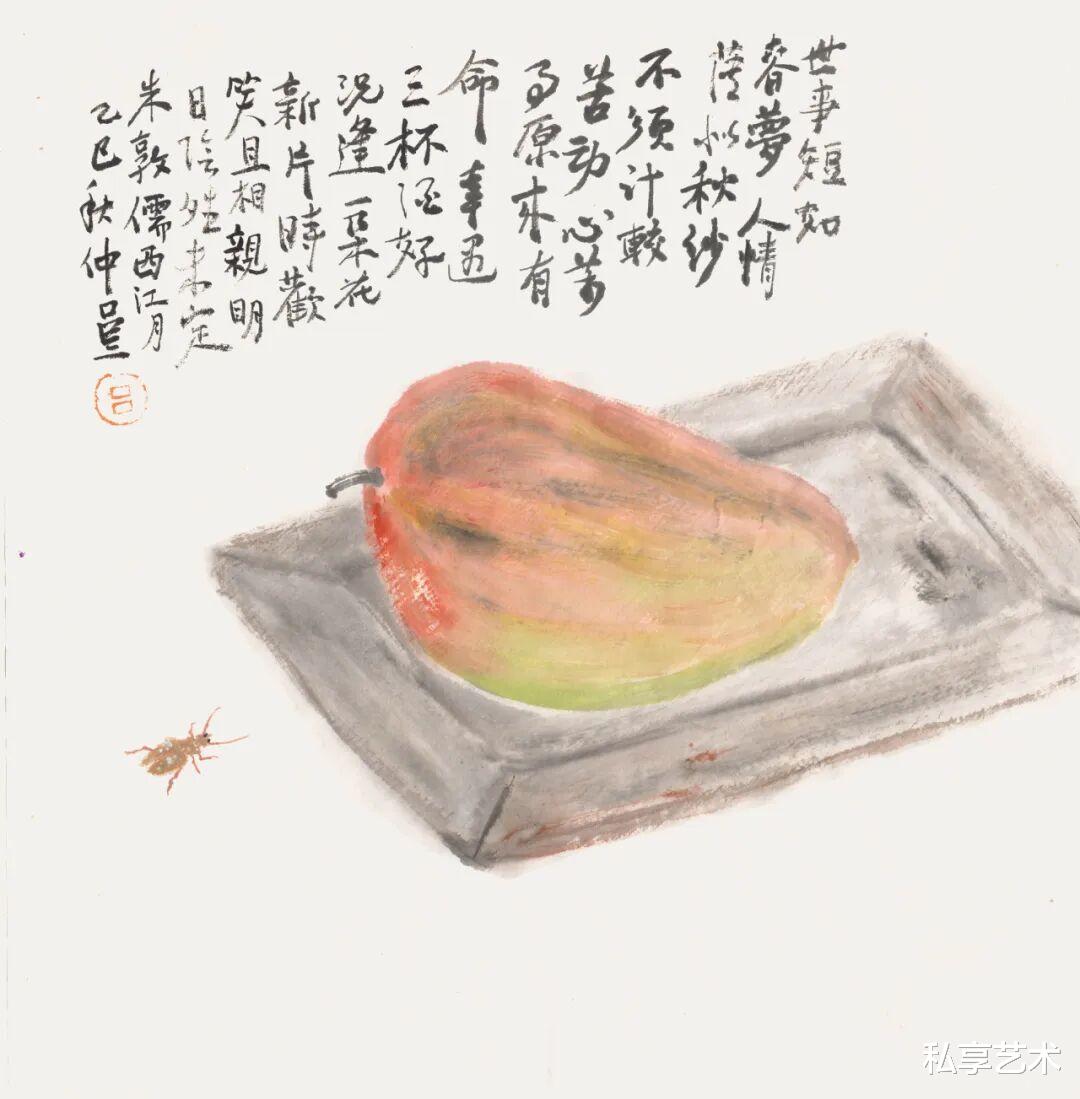 世事短如
春夢人情
薄似秋紗
不須计較
苦动心万
事原來有
命幸遇
三杯酒好
况逢一朵花
新片時歡
笑且相親明
日陰晴未定
朱敦儒西江月
乙巳秋仲吕三
吕
私享艺术